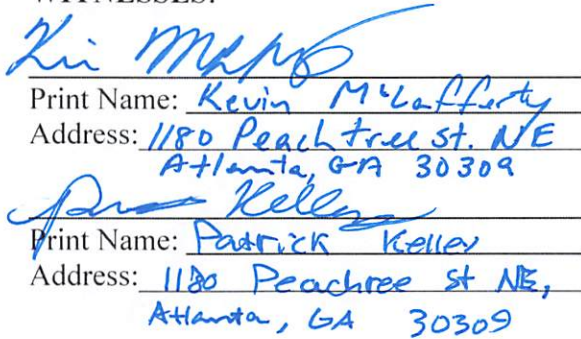 WITNESSES:
Print Name: Kevin McLafferty
Address: 1180 Peachtree St. NE
Atlanta, GA 30309
Kelley
Print Name: Patrick Kelley
Address: 1180 Peachree St NE,
Atlanta, GA 30309